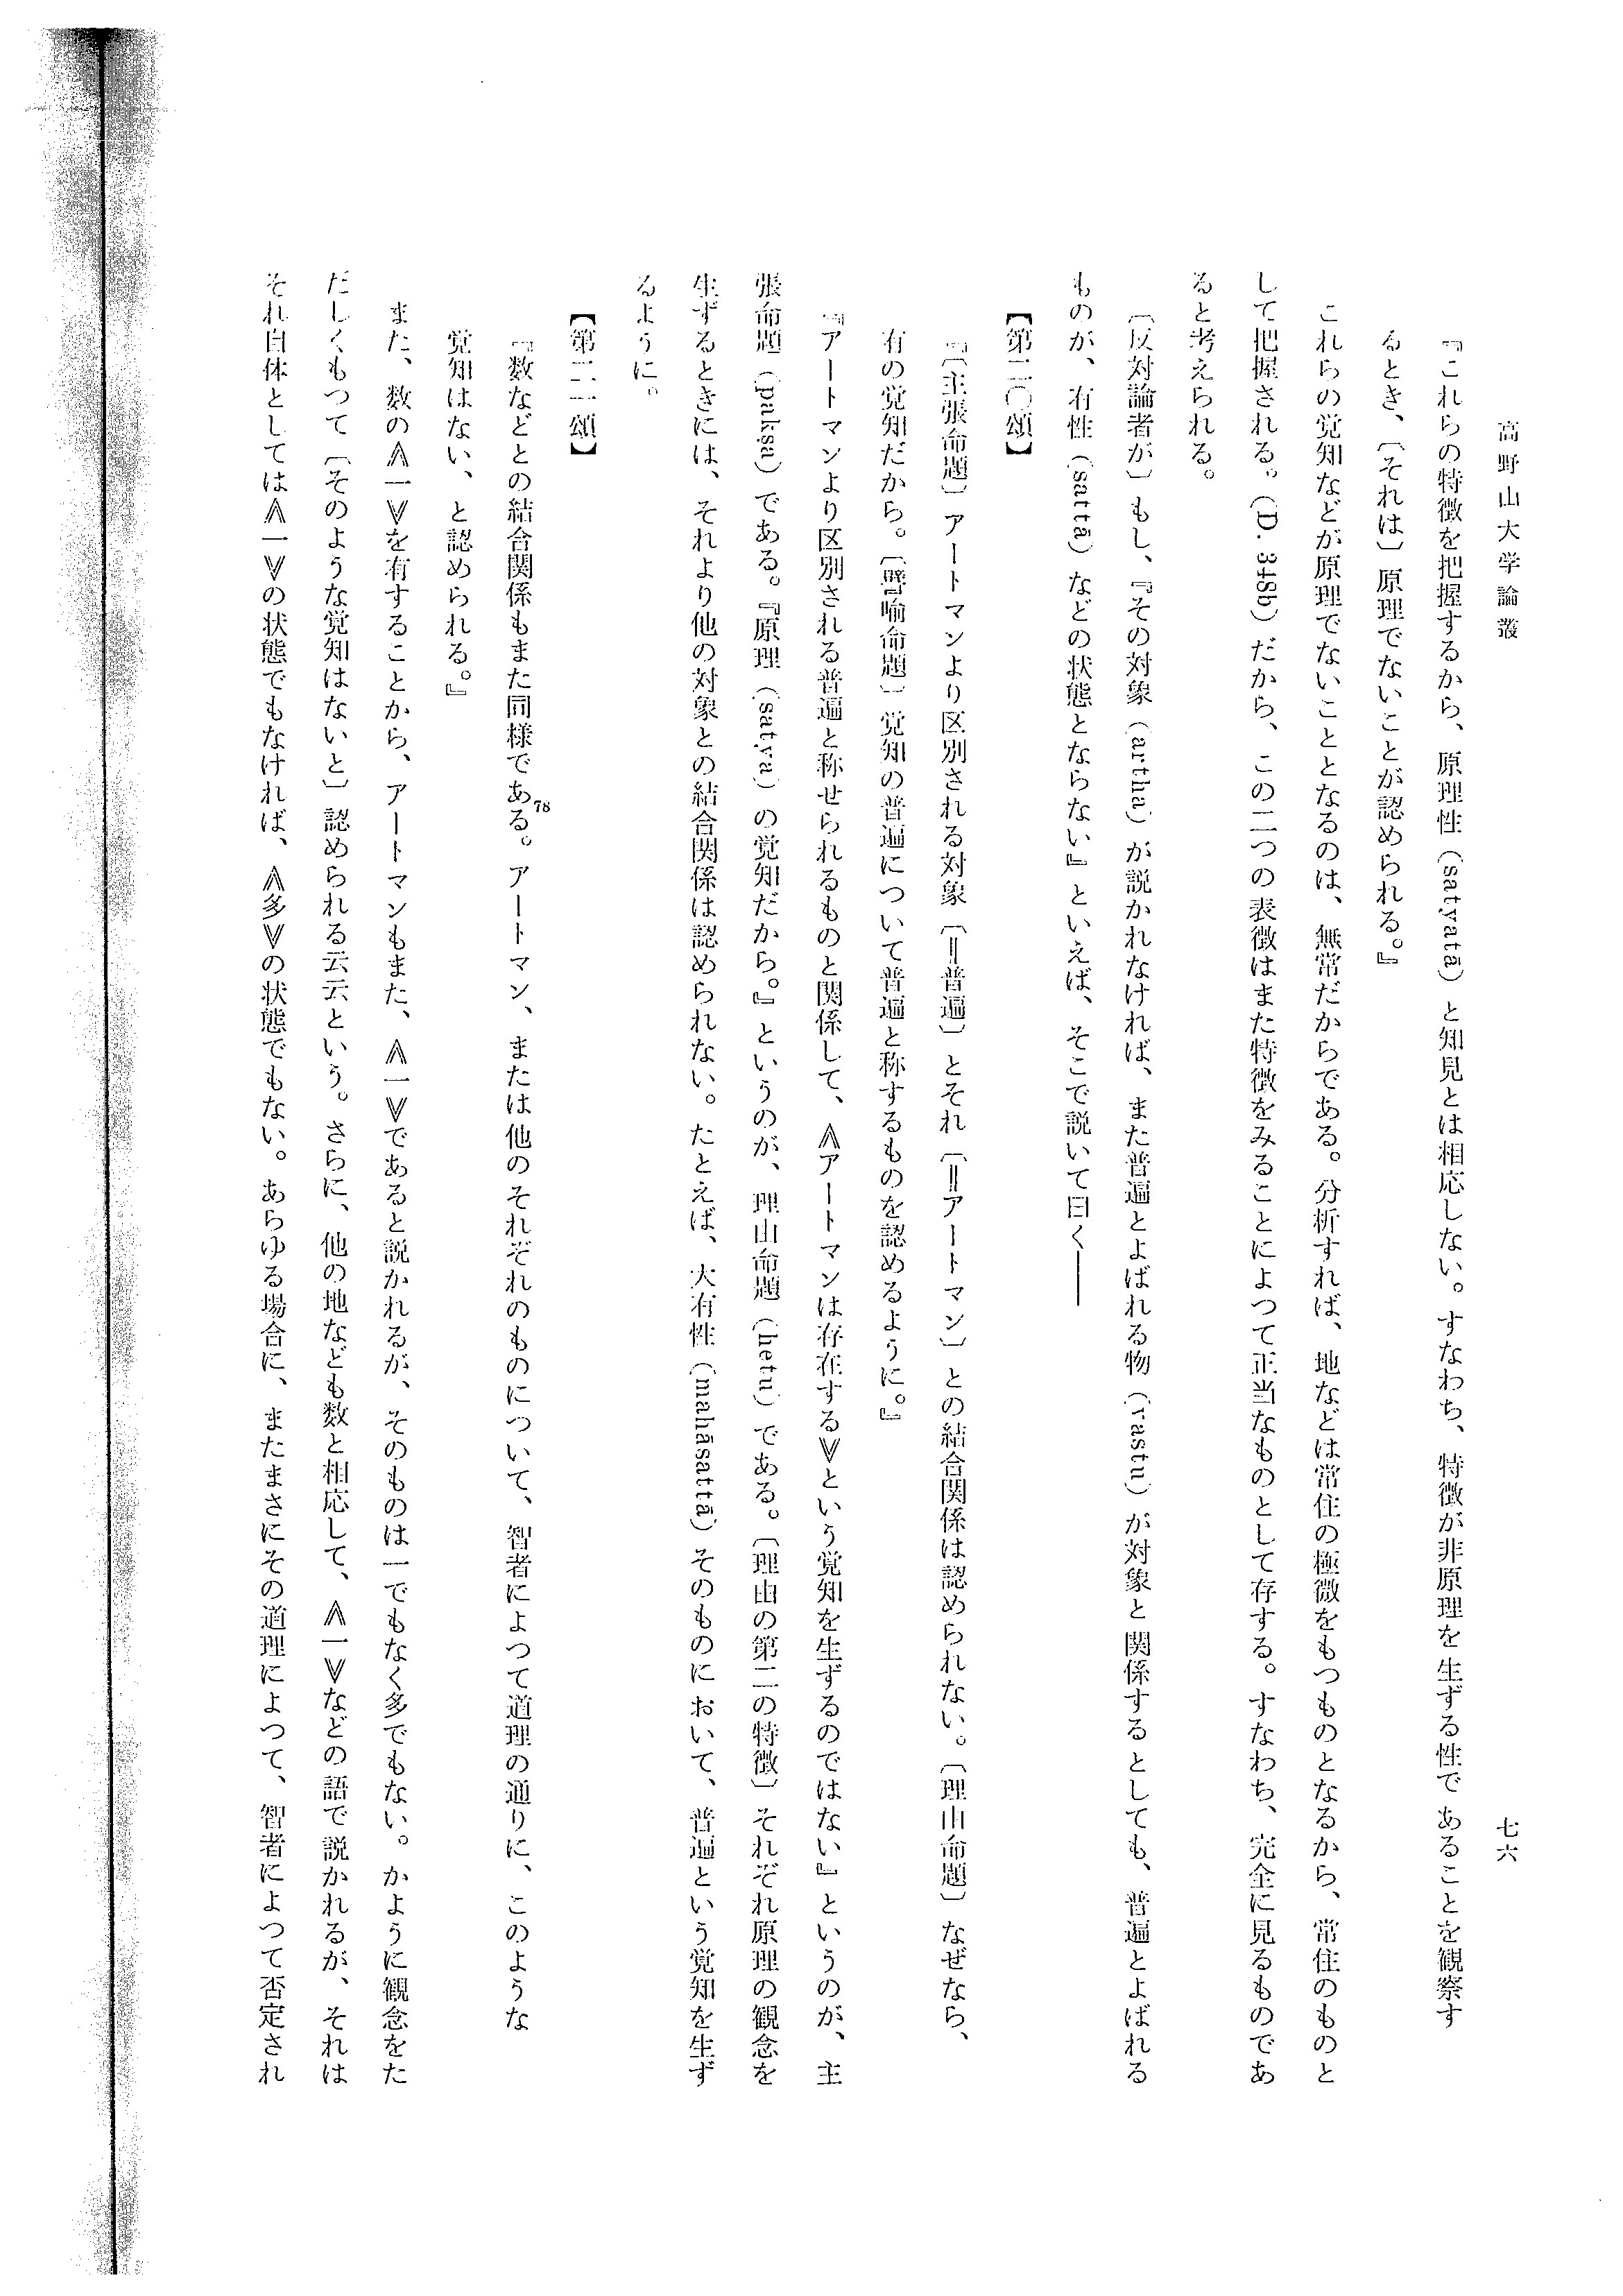 高野山大学論叢
七六
『これらの特徴を把握するから、原理性（satyatā）と知見とは相応しない。すなわち、特徴が非原理を生ずる性であることを観察す
るとき、〔それは〕原理でないことが認められる。』
これらの覚知などが原理でないこととなるのは、無常だからである。分析すれば、地などは常住の極微をもつものとなるから、常住のものと
して把握される。（D. 348b）だから、この二つの表徴はまた特徴をみることによつて正当なものとして存する。すなわち、完全に見るものであ
ると考えられる。
〔反対論者が〕もし、『その対象（artha）が説かれなければ、また普遍とよばれる物（vastu）が対象と関係するとしても、普遍とよばれる
ものが、有性（sattā）などの状態とならない』といえば、そこで説いて曰く――
【第二〇頌】
『〔主張命題〕アートマンより区別される対象〔＝普遍〕とそれ〔＝アートマン〕との結合関係は認められない。〔理由命題〕なぜなら、
有の覚知だから。〔譬喩命題〕覚知の普遍について普遍と称するものを認めるように。』
『アートマンより区別される普遍と称せられるものと関係して、≪アートマンは存在する≫という覚知を生ずるのではない』というのが、主
張命題（pakṣa）である。『原理（satya）の覚知だから。』というのが、理由命題（hetu）である。〔理由の第二の特徴〕それぞれ原理の観念を
生ずるときには、それより他の対象との結合関係は認められない。たとえば、大有性（mahāsattā）そのものにおいて、普遍という覚知を生ず
るように。
【第二一頌】
『数などとの結合関係もまた同様である。78 アートマン、または他のそれぞれのものについて、智者によつて道理の通りに、このような
覚知はない、と認められる。』
また、数の≪一≫を有することから、アートマンもまた、≪一≫であると説かれるが、そのものは一でもなく多でもない。かように観念をた
だしくもつて〔そのような覚知はないと〕認められる云云という。さらに、他の地なども数と相応して、≪一≫などの語で説かれるが、それは
それ自体としては≪一≫の状態でもなければ、≪多≫の状態でもない。あらゆる場合に、またまさにその道理によつて、智者によつて否定され